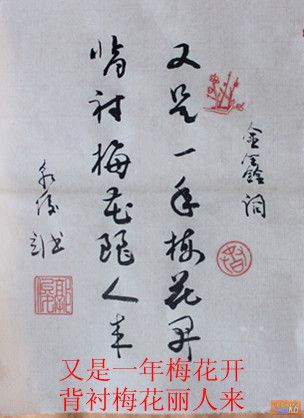 金鑫词
又是一年梅花开
背衬梅花丽人来
又是一年梅花开
背衬梅花丽人来